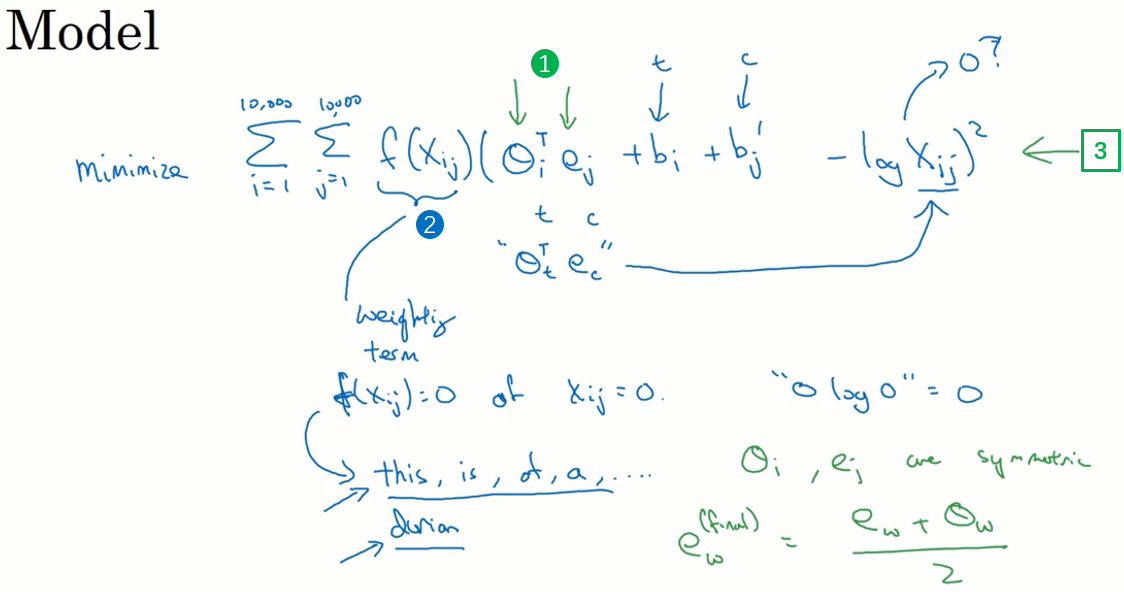 Model
minimize
10,000 10,000
∑ ∑ f(Xij)(θiᵀ ej + bi + bj' - log Xij)²
i=1 j=1
1
t c
0?
3
2
t c
"θtᵀ ec"
weighting
term
f(Xij)=0 if Xij=0. "0 log 0" = 0
this, is, of, a, ....
durian
θi, ej are symmetric
ew(final) = (ew + θw) / 2